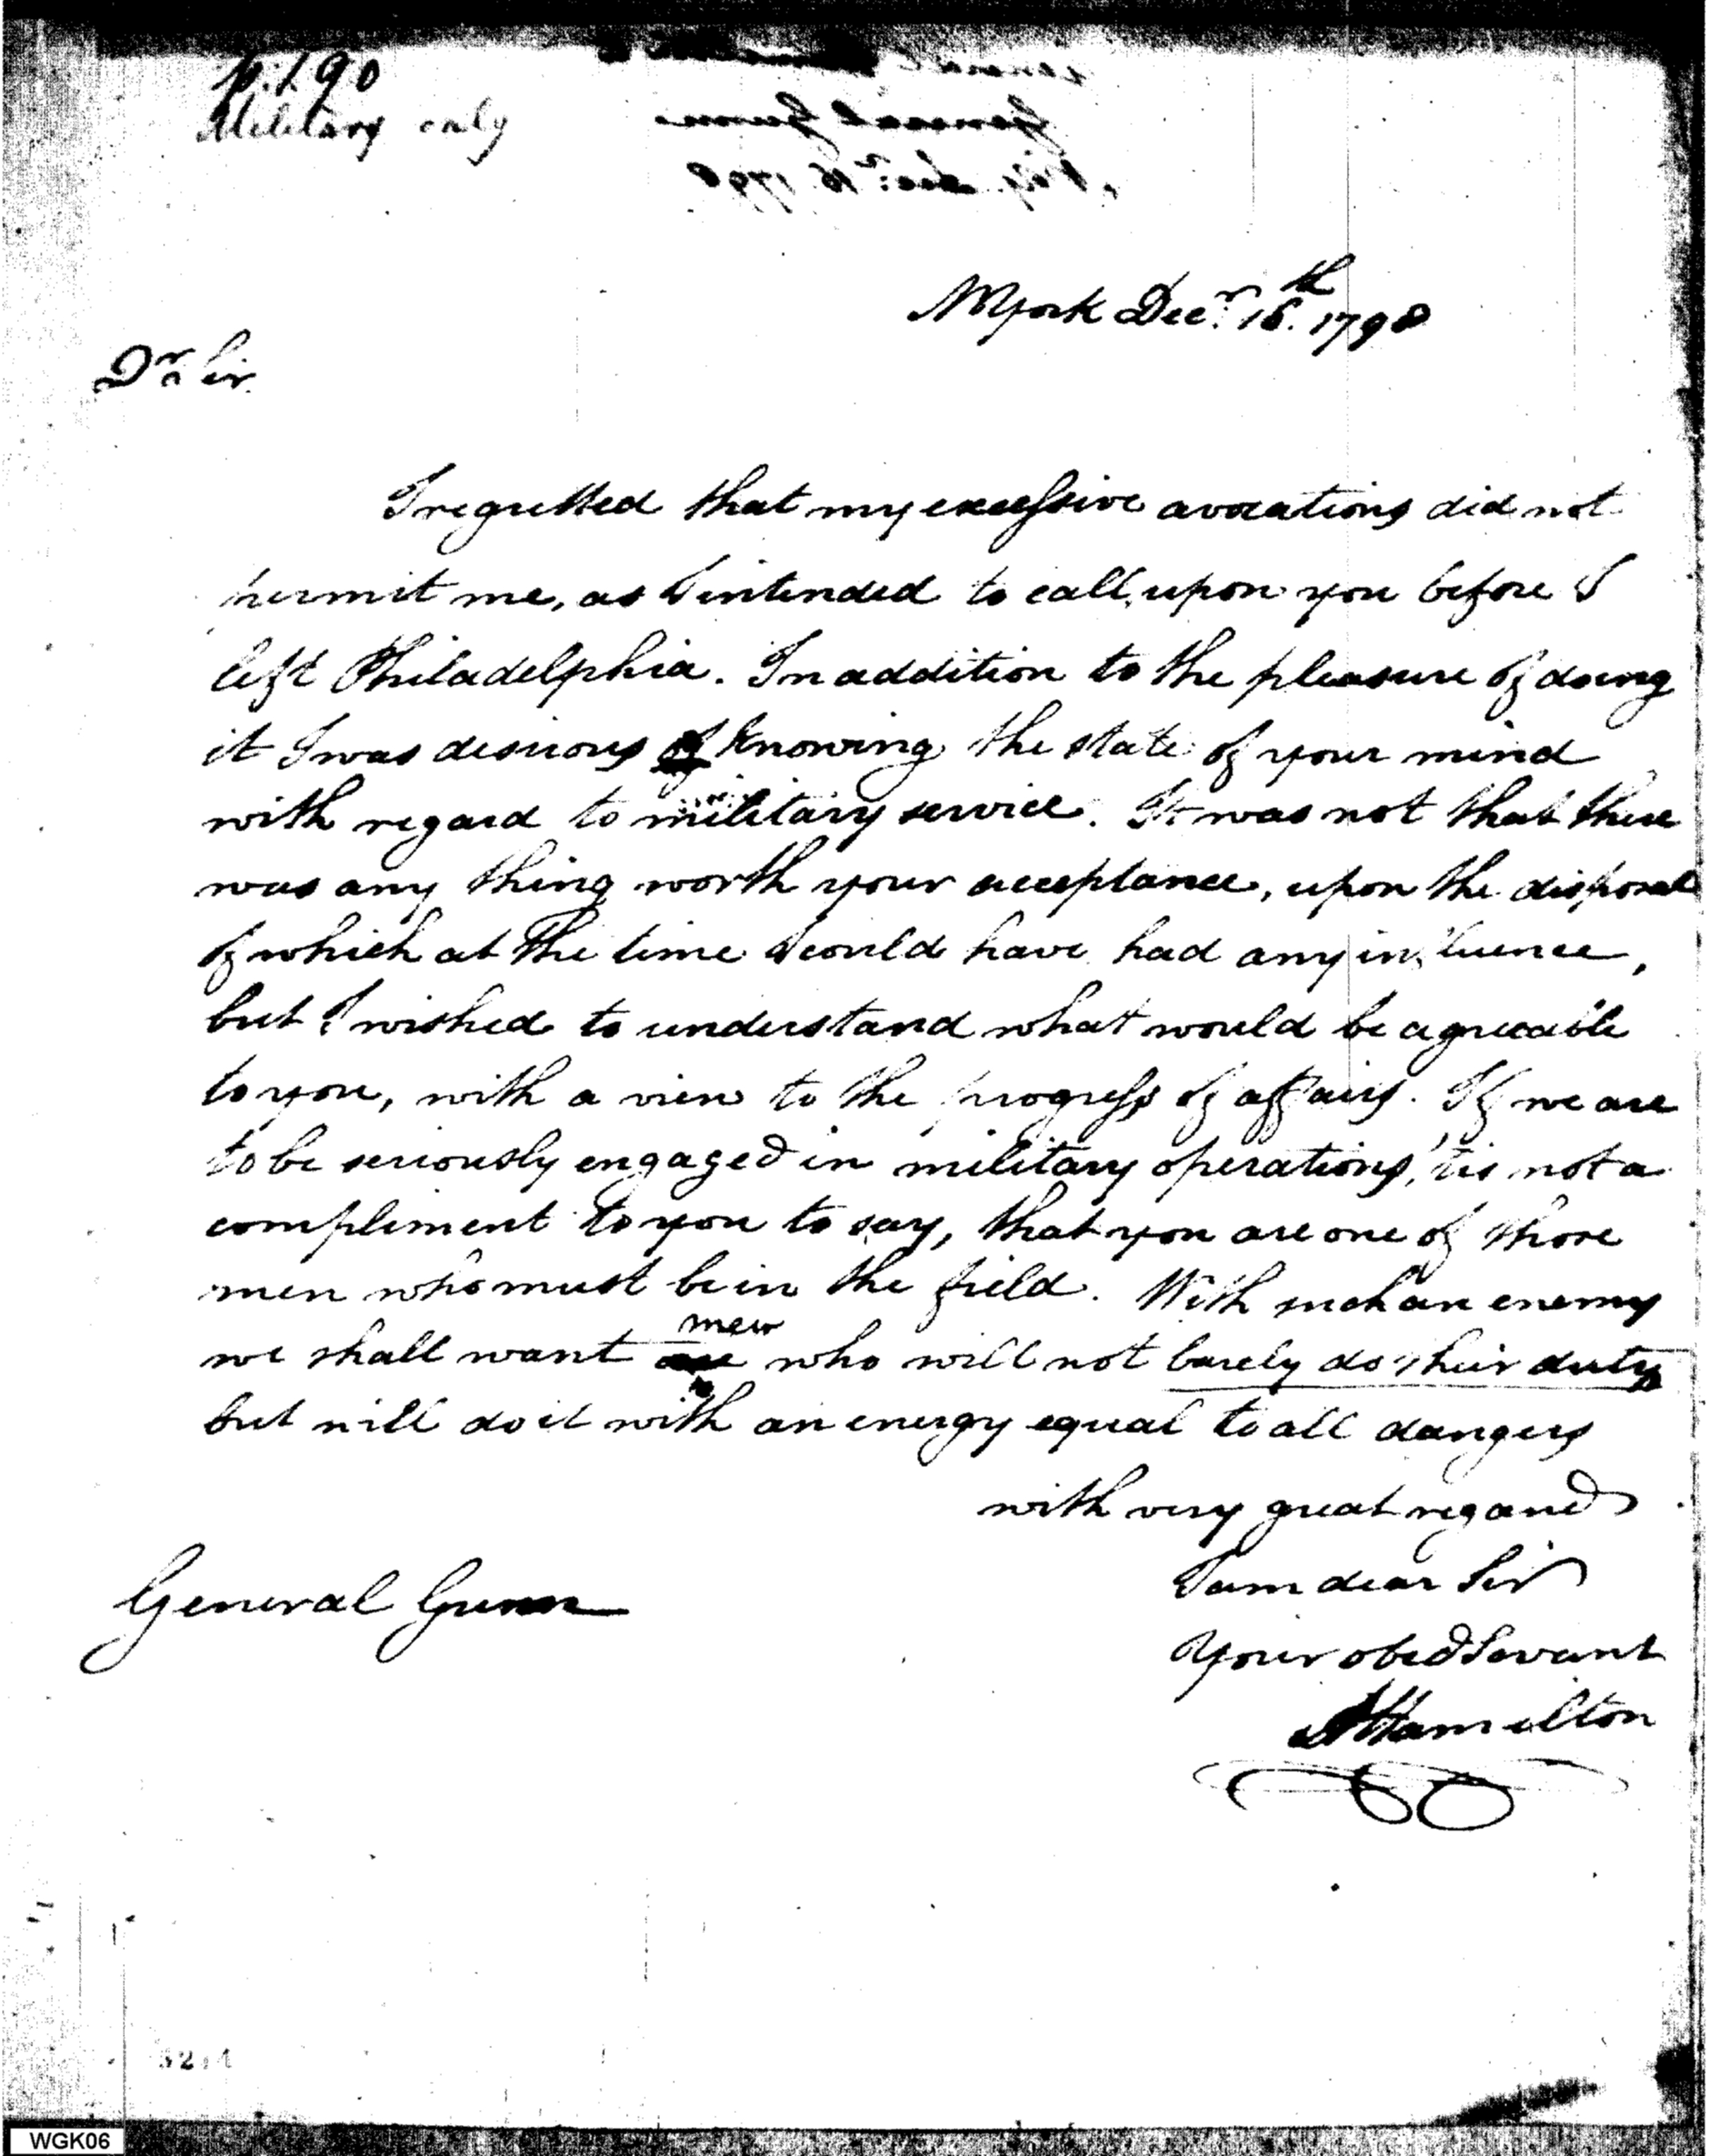 p. 190
Military only
General Gunn
N Y. Decr. 16. 1798
NYork Decr. 16th. 1798
Dr Sir
I regretted that my excessive avocations did not
permit me, as I intended to call upon you before I
left Philadelphia. In addition to the pleasure of doing
it I was desirous of knowing the state of your mind
with regard to military service. It was not that there
was any thing worth your acceptance, upon the disposal
of which at the time I could have had any influence,
but I wished to understand what would be agreeable
to you, with a view to the progress of affairs. If we are
to be seriously engaged in military operations, 'tis not a
compliment to you to say, that you are one of those
men who must be in the field. With such an enemy
men
we shall want who will not barely do their duty
but will do it with an energy equal to all dangers
with very great regard
I am dear Sir
Your obed Servant
AHamilton
General Gunn
WGK06